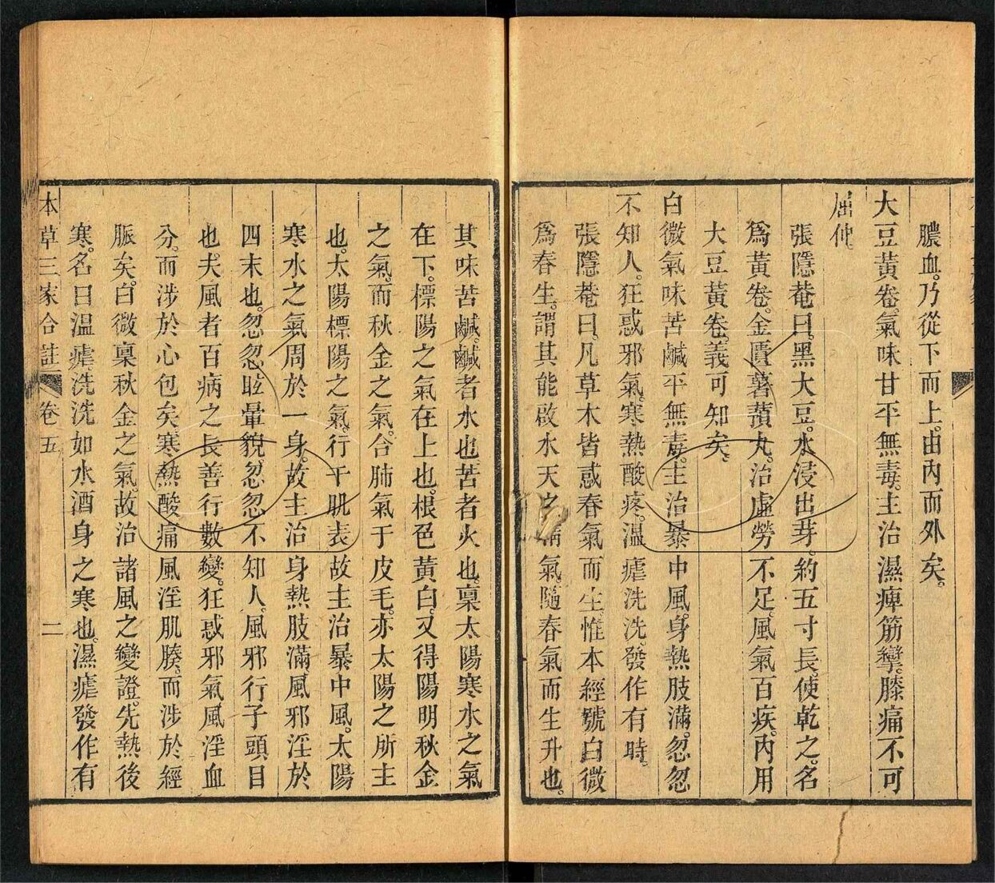 膿血。乃從下而上。由內而外矣。
大豆黃卷。氣味甘平無毒。主治濕痺筋攣膝痛不可
屈伸
張隱菴曰。黑大豆。水浸出芽。約五寸長。使乾之。名
爲黃卷。金匱薯蕷丸。治虛勞不足。風氣百疾。內用
大豆黃卷。義可知矣。
白微氣味苦鹹平無毒。主治暴中風。身熱肢滿。忽忽
不知人。狂惑邪氣。寒熱酸疼。溫瘧洗洗發作有時。
張隱菴曰。凡草木皆感春氣而生。惟本經號白微
爲春生。謂其能啟水天之氣。隨春氣而生升也。
其味苦鹹。鹹者水也。苦者火也。稟太陽寒水之氣
在下。標陽之氣在上也。根色黃白。又得陽明秋金
之氣。而秋金之氣。合肺氣于皮毛。亦太陽之所主
也。太陽標陽之氣。行于肌表。故主治暴中風。太陽
寒水之氣。周於一身。故主治身熱肢滿。風邪淫於
四末也。忽忽眩暈貌。忽忽不知人。風邪行于頭目
也。夫風者百病之長。善行數變。狂惑邪氣。風淫血
分。而涉於心包矣。寒熱酸痛。風淫肌腠。而涉於經
脈矣。白微稟秋金之氣。故治諸風之變證。先熱後
寒。名曰溫瘧。洗洗如水酒身之寒也。濕瘧發作有
本草三家合註
卷五
二